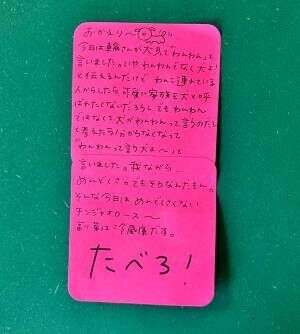 おかえり〜
今日は息子さんが犬見て「わんわん」と
言いました。いやわんわんじゃなく犬よ
と伝えるんだけど わんこ連れている
人からしたら可愛い家族を犬と呼
ばれたくないだろうし でもわんわん
ではなくて犬がわんわんって言うのだし
と考えたら分からなくなって
「わんわんって言う犬よ〜」と
言いました。我ながら…
めんどくさ。でもそうなんだもん。
そんな今日は めんどくさくない
チンジャオロース〜
副菜は冷蔵庫です。
たべろ！